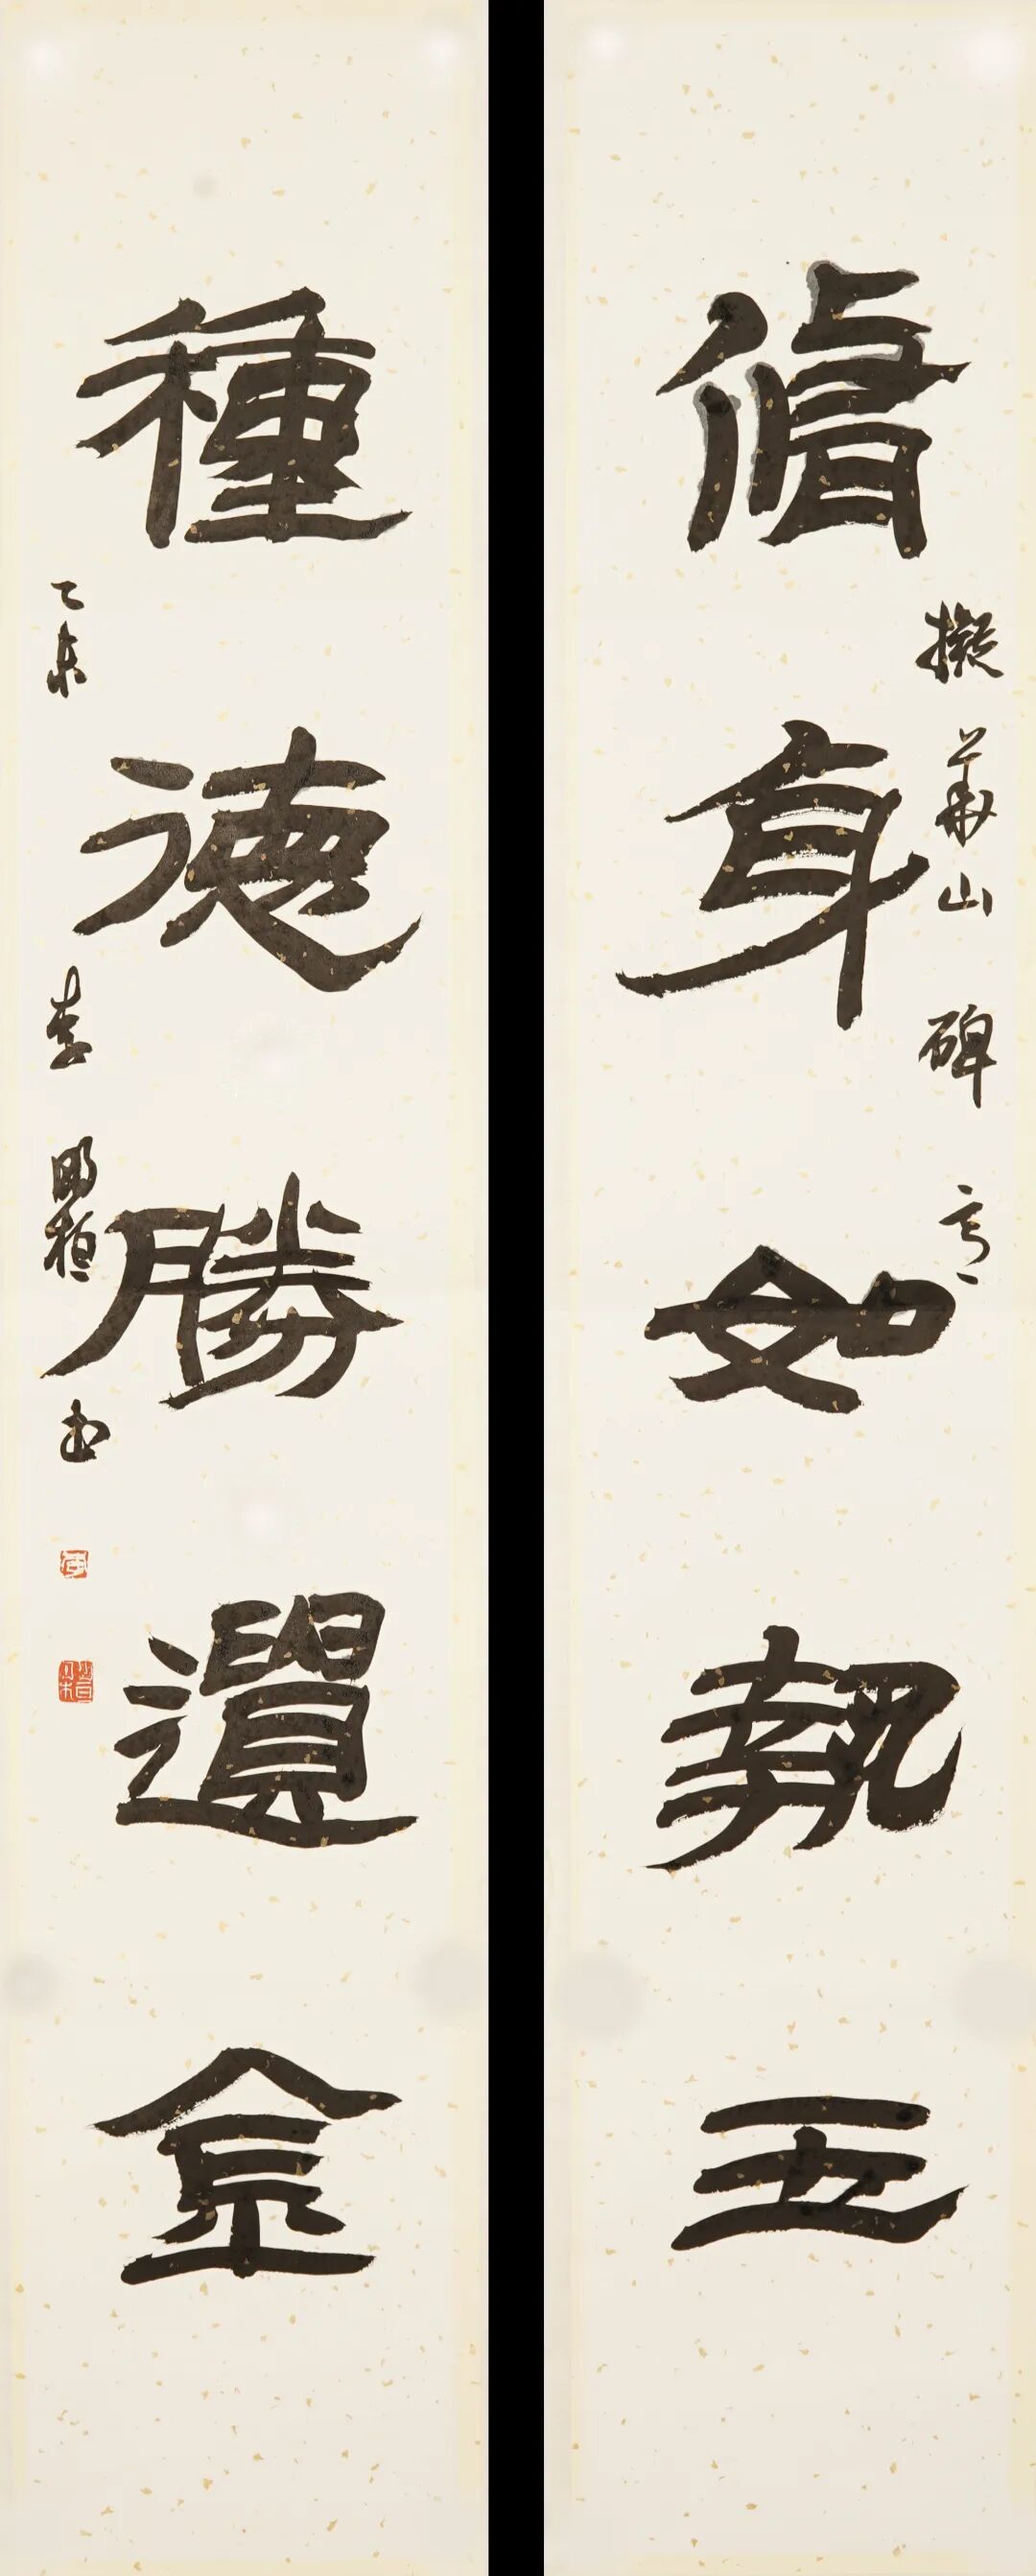 脩身如執玉
擬華山碑意
種德勝遺金
乙未 李明桓書